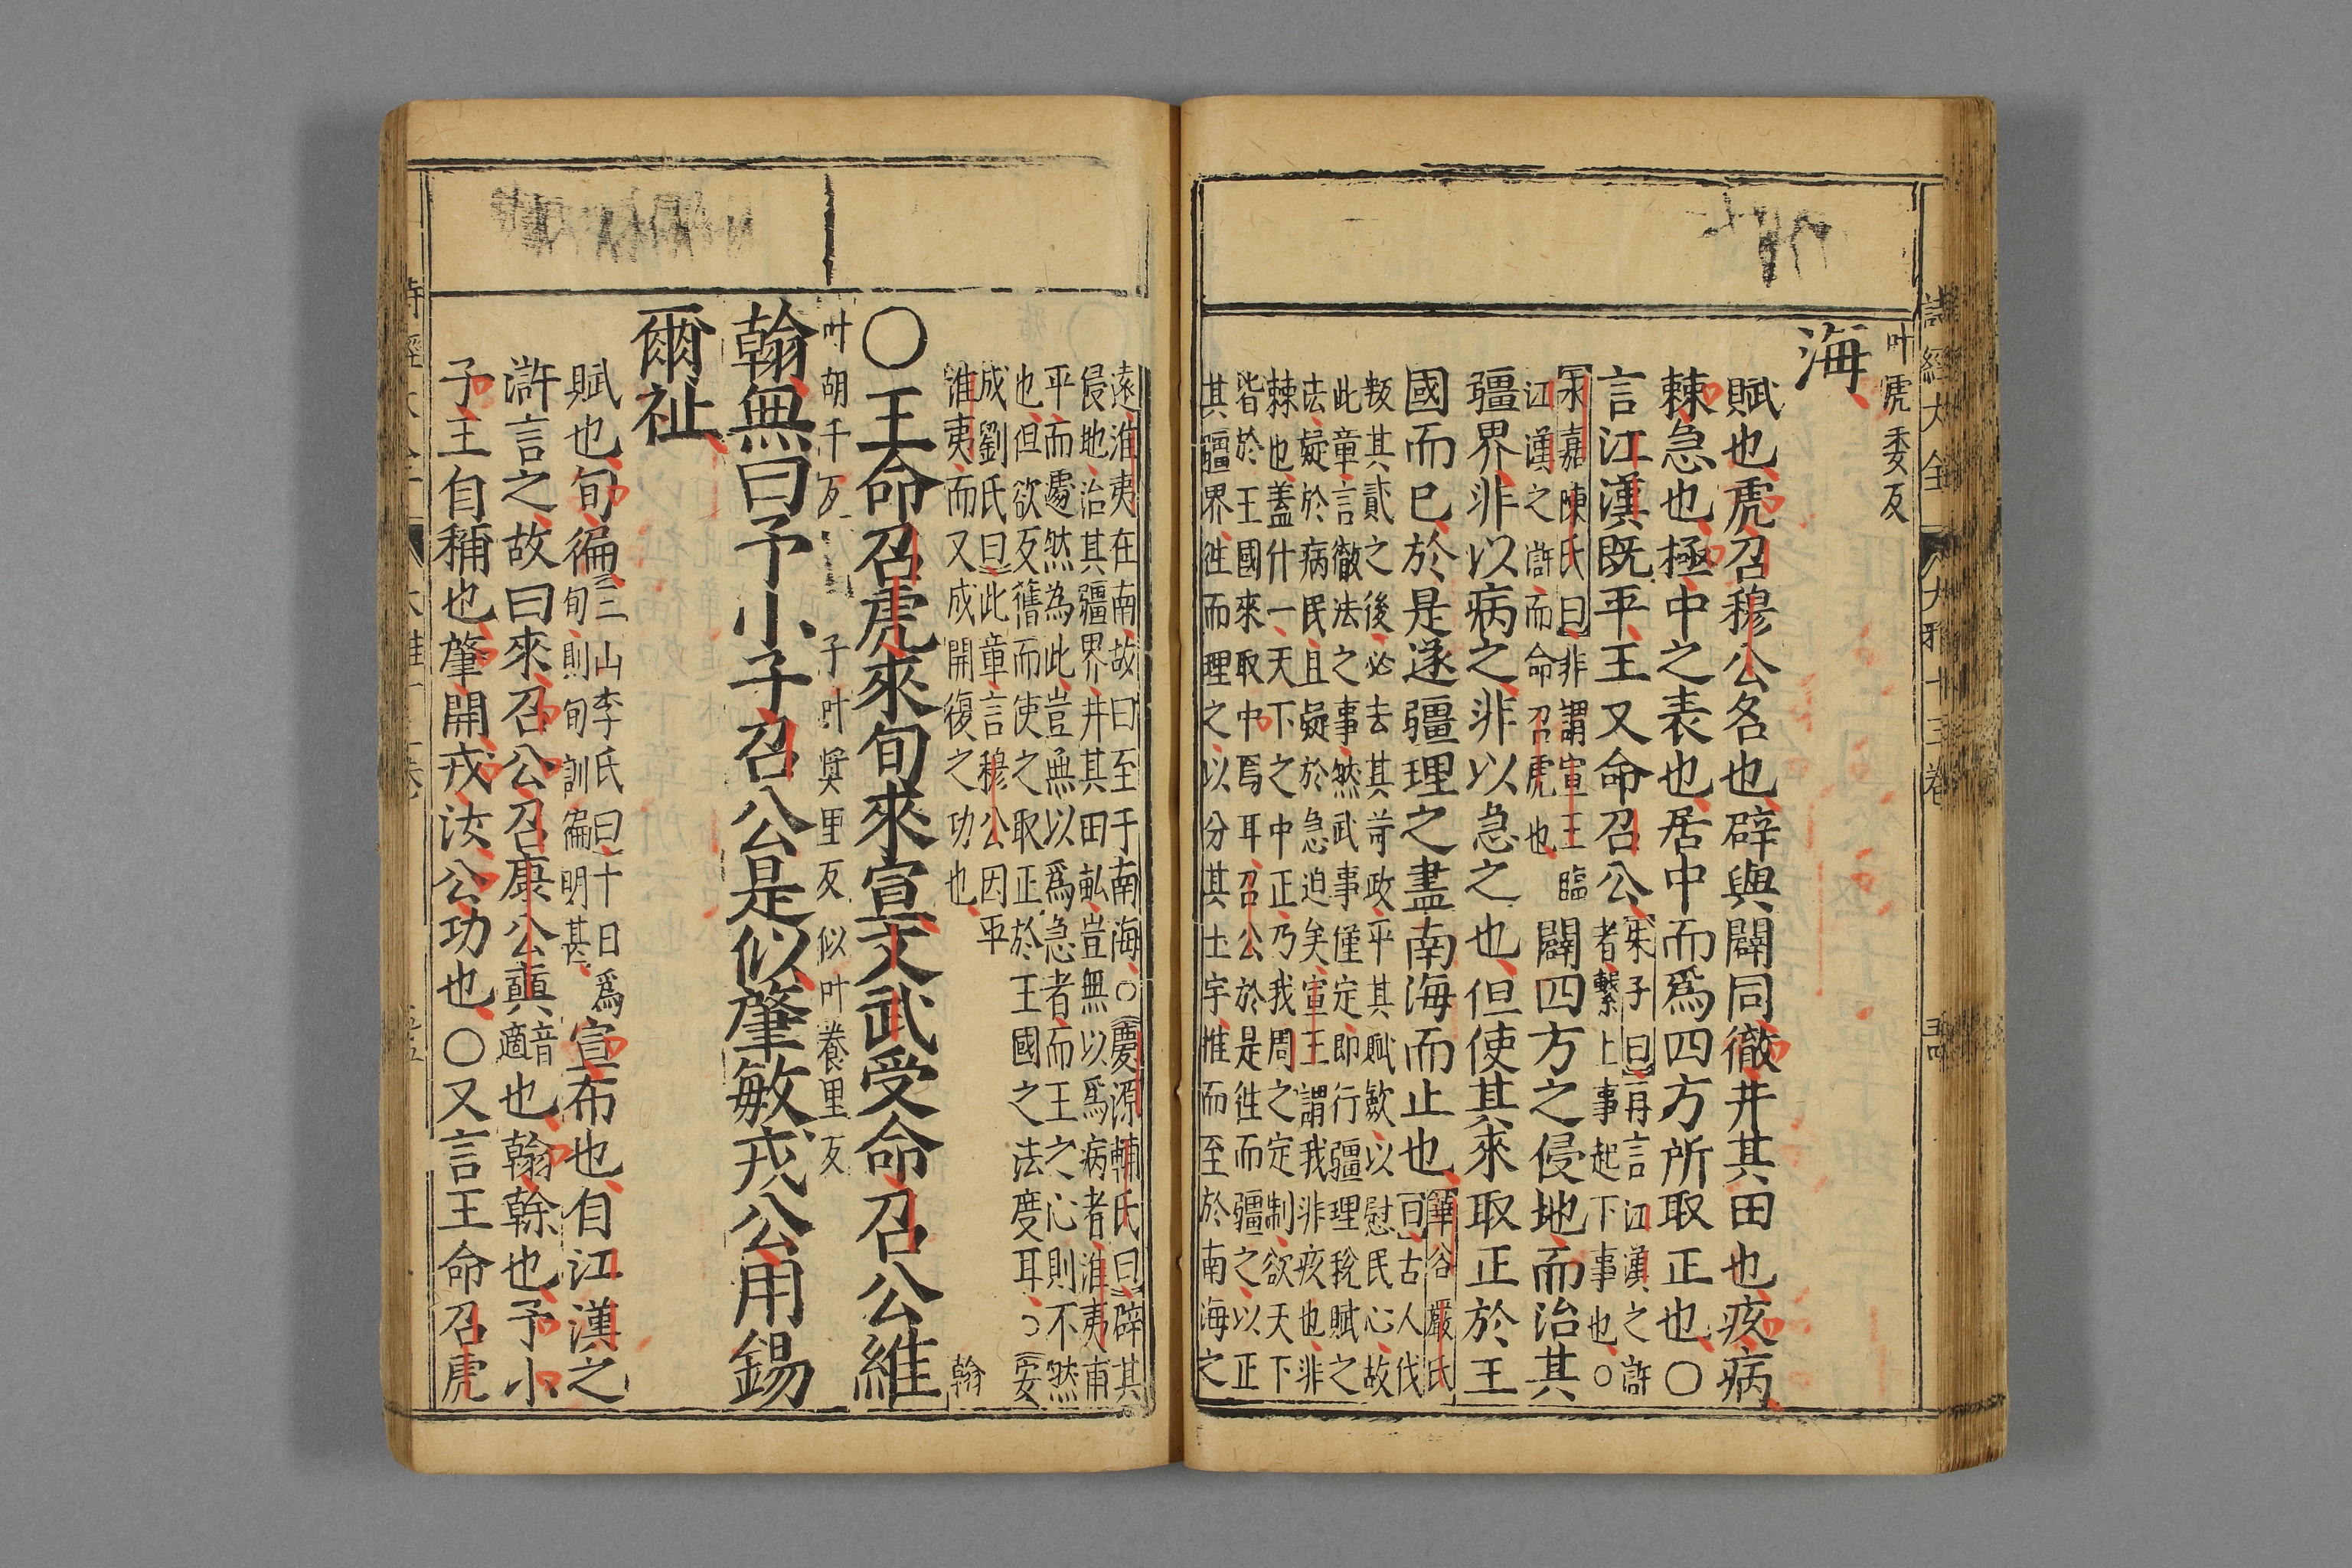 詩經大全 大雅十三卷
叶虎委反
海
賦也虎召穆公名也辟與闢同徹井其田也疚病
棘急也極中之表也居中而爲四方所取正也○
言江漢既平王又命召公
朱子曰再言江漢之滸
者繫上事起下事也○
永嘉陳氏曰非謂宣王臨
江漢之滸而命召虎也
闢四方之侵地而治其
疆界非以病之非以急之也但使其來取正於王
國而已於是遂疆理之盡南海而止也
華谷嚴氏
曰古人伐
叛其貳之後必去其苛政平其賦歛以慰民心故
此章言徹法之事然武事僅定即行疆理稅賦之
法疑於病民且疑於急迫矣宣王謂我非疚也非
棘也蓋什一天下之中正乃我周之定制欲天下
皆於王國來取中焉耳召公於是徃而疆之以正
其疆界徃而理之以分其土宇惟而至於南海之
遠淮夷在南故曰至于南海○慶源輔氏曰辟其
侵地治其疆界井其田畆豈無以爲病者淮夷甫
平而處然為此豈無以爲急者而王之心則不然
也但欲反舊而使之取正於王國之法度耳○安
成劉氏曰此章言穆公因平
淮夷而又成開復之功也
○王命召虎來旬來宣文武受命召公維
翰
叶胡千反
子叶奬里反
似叶養里反
翰無曰予小子召公是似肇敏戎公用錫
爾祉
賦也旬徧
三山李氏曰十日爲
旬則旬訓徧明甚
宣布也自江漢之
滸言之故曰來召公召康公奭
音
適
也翰榦也予小
子王自稱也肇開戎汝公功也○又言王命召虎